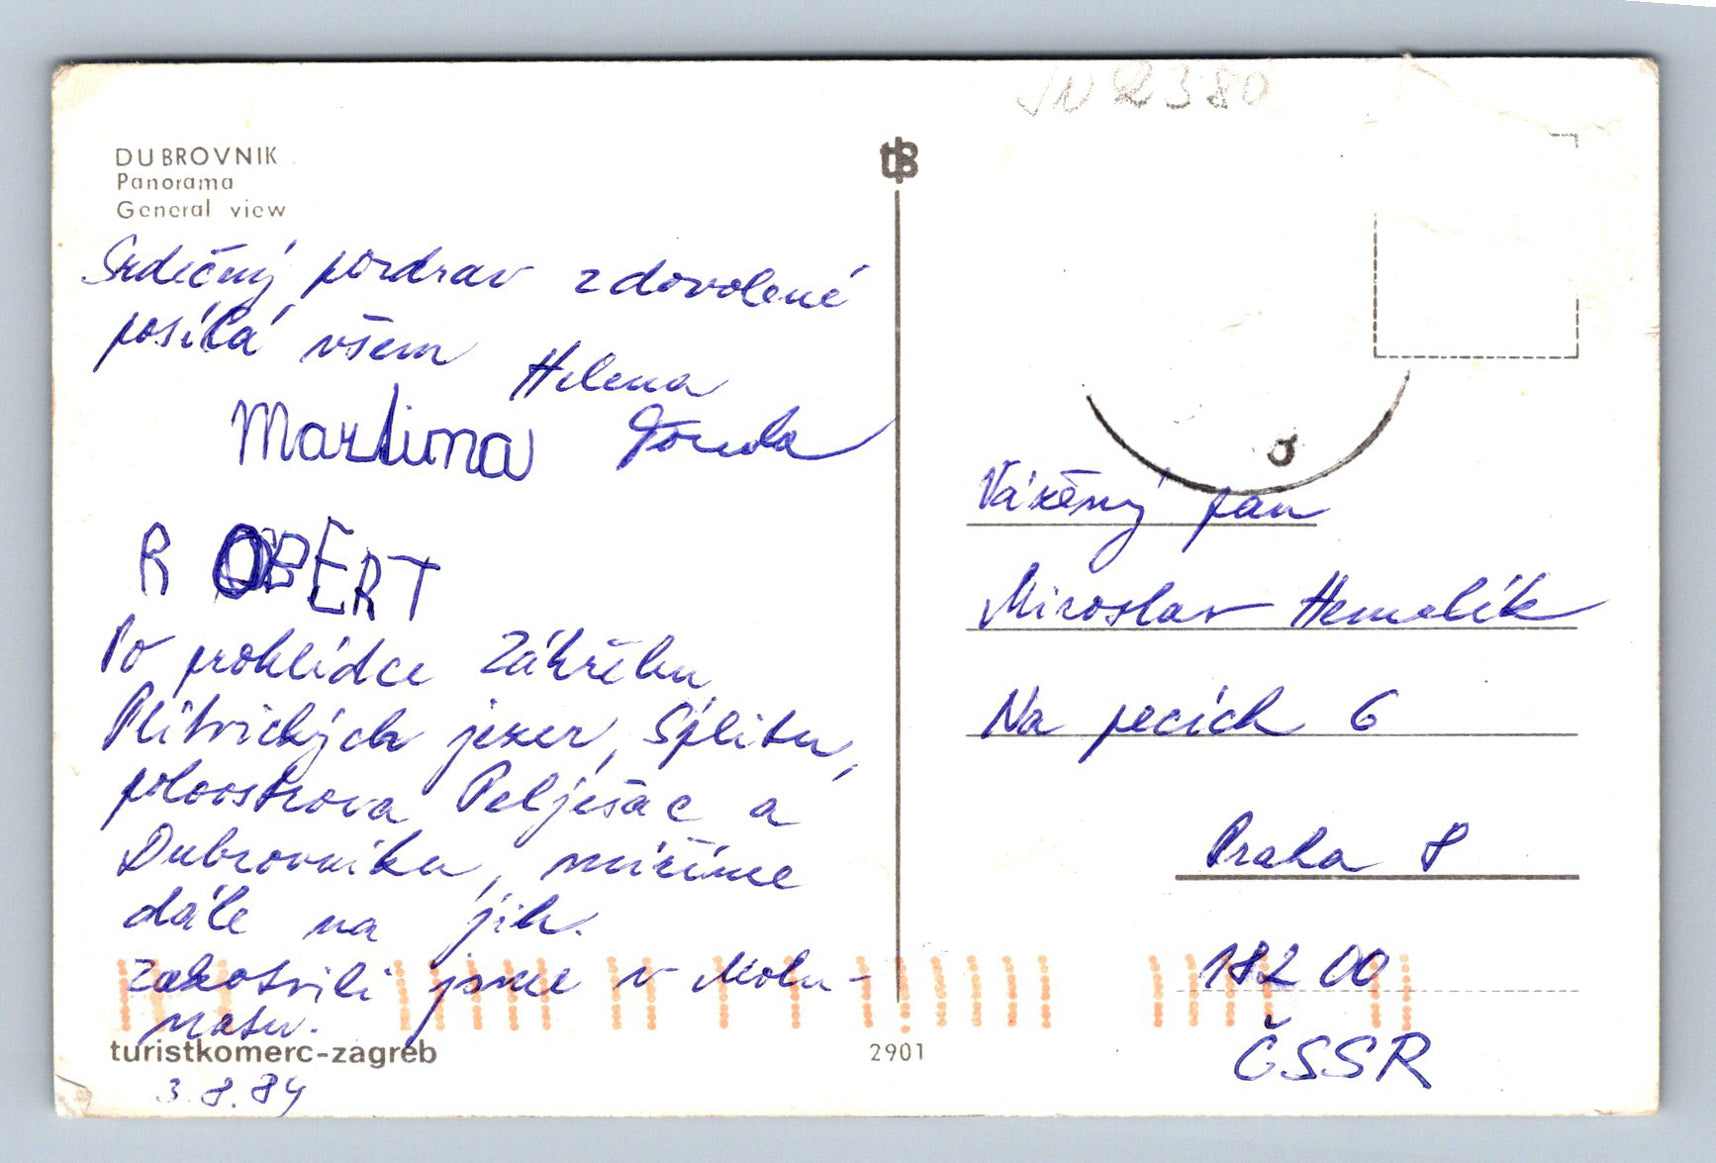 JN 2380
DUBROVNIK
Panorama
General view
Srdečný pozdrav z dovolené
posílá všem Helena
Martina
ROBERT
Po prohlídce Záhřebu,
Plitvických jezer, Splitu,
poloostrova Pelješac a
Dubrovníku, míříme
dále na jih.
Zakotvili jsme v Molu-
natu.
turistkomerc-zagreb
3.8.84
2901
Vážený pan
Miroslav Hemelík
Na pecích 6
Praha 8
182 00
ČSSR